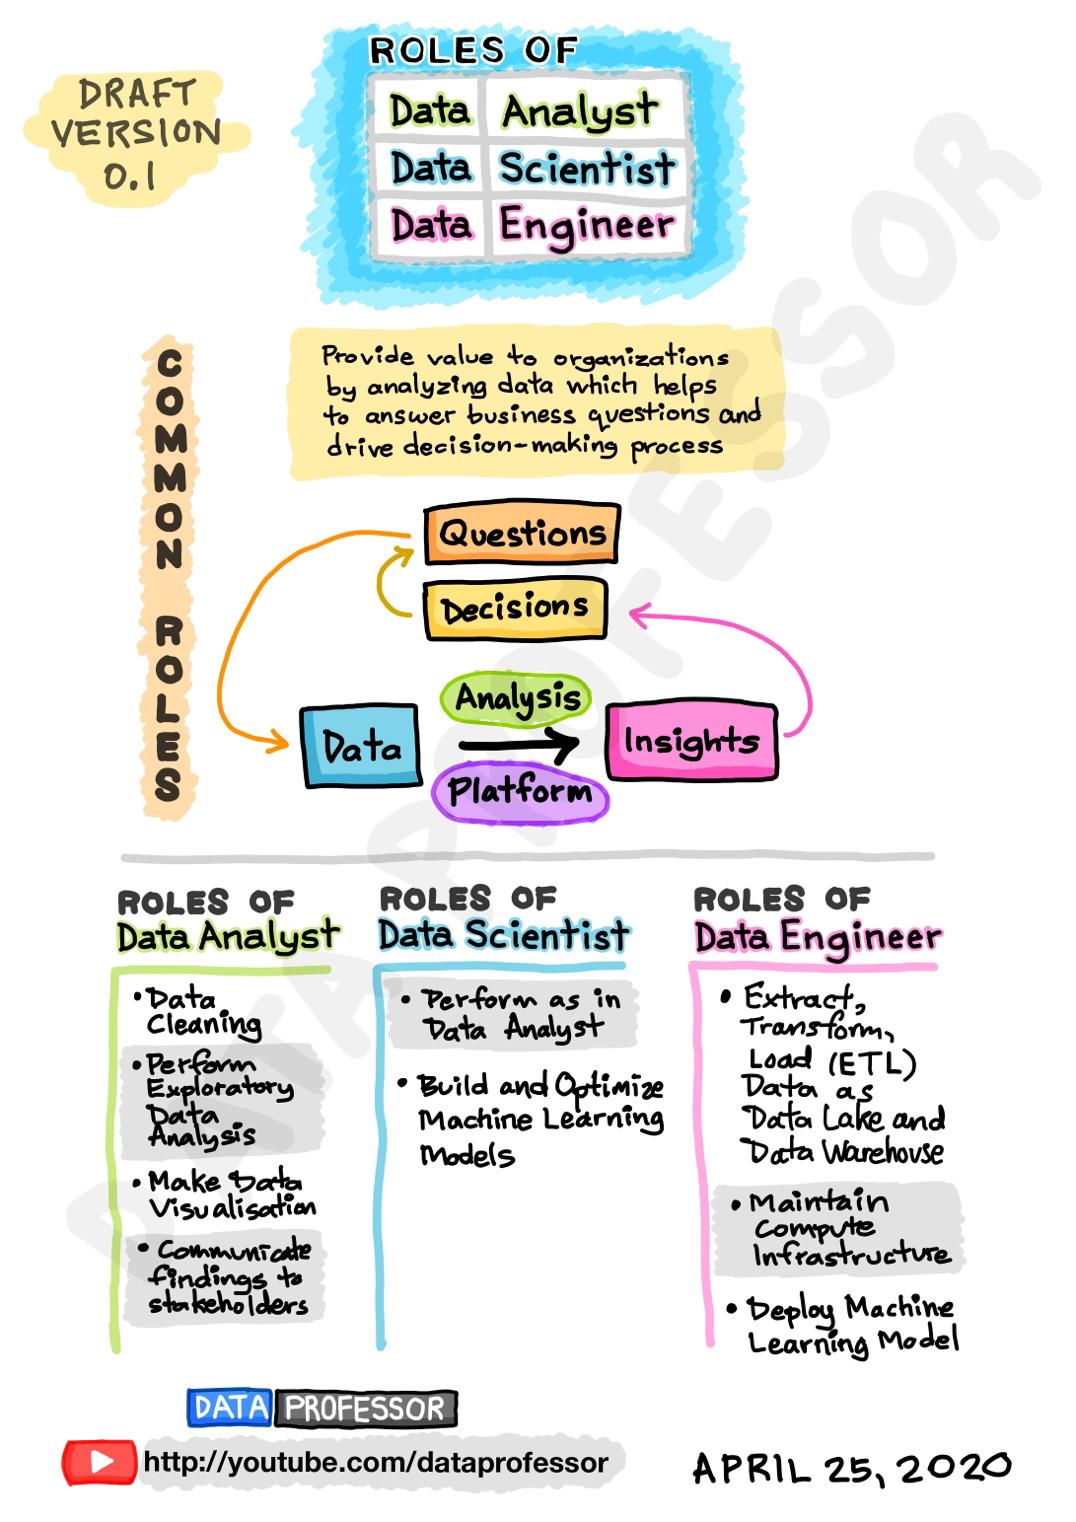 DRAFT
VERSION
0.1
ROLES OF
Data Analyst
Data Scientist
Data Engineer
COMMON ROLES
Provide value to organizations
by analyzing data which helps
to answer business questions and
drive decision-making process
Questions
Decisions
Analysis
Data
Insights
Platform
ROLES OF
Data Analyst
• Data
Cleaning
• Perform
Exploratory
Data
Analysis
• Make Data
Visualisation
• Communicate
findings to
stakeholders
ROLES OF
Data Scientist
• Perform as in
Data Analyst
• Build and Optimize
Machine Learning
Models
ROLES OF
Data Engineer
• Extract,
Transform,
Load (ETL)
Data as
Data Lake and
Data Warehouse
• Maintain
Compute
Infrastructure
• Deploy Machine
Learning Model
DATA PROFESSOR
http://youtube.com/dataprofessor
APRIL 25, 2020
DATA PROFESSOR